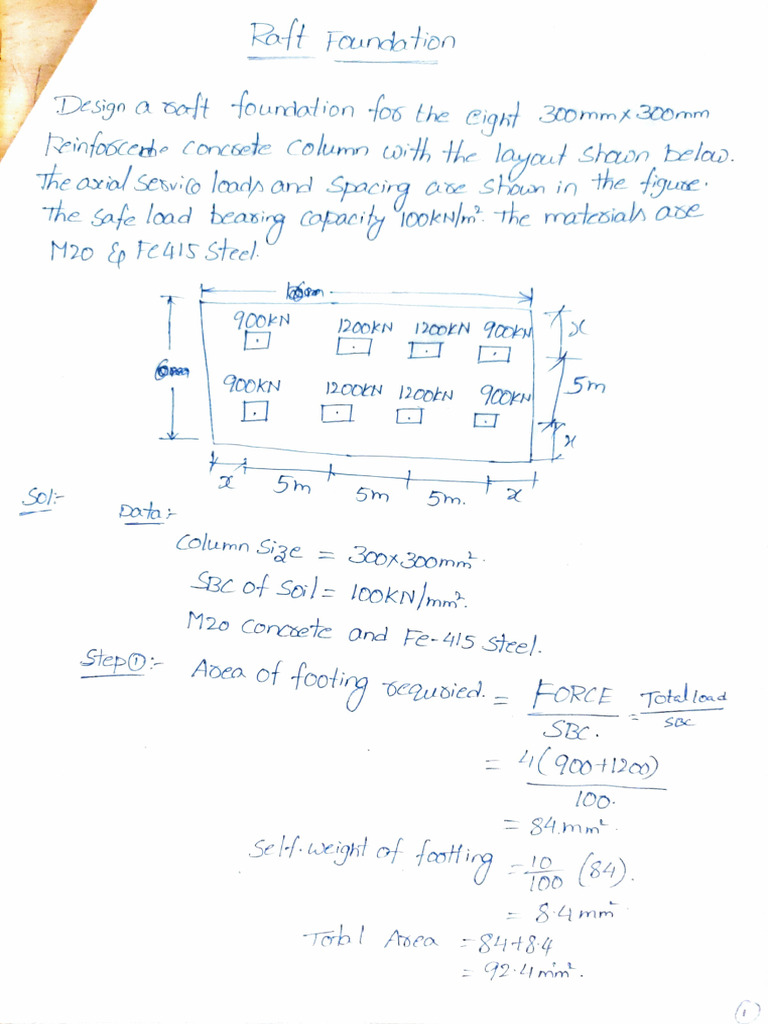 Raft Foundation
Design a raft foundation for the eight 300mm x 300mm
Reinforced concrete column with the layout shown below.
The axial service loads and spacing are shown in the figure.
The safe load bearing capacity 100kN/m². The materials are
M20 & Fe415 Steel.
900KN 1200KN 1200KN 900KN
x
5m
900KN 1200KN 1200KN 900KN
x
x 5m 5m 5m. x
Sol:-
Data:-
Column Size = 300x300mm².
SBC of Soil = 100KN/mm².
M20 concrete and Fe-415 Steel.
Step①:- Area of footing requried. = FORCE/SBC. = Total load/SBC
= 4(900+1200)/100.
= 84.mm².
Self.weight of footting = 10/100 (84).
= 8.4mm²
Total Area = 84+8.4
= 92.4mm².
1